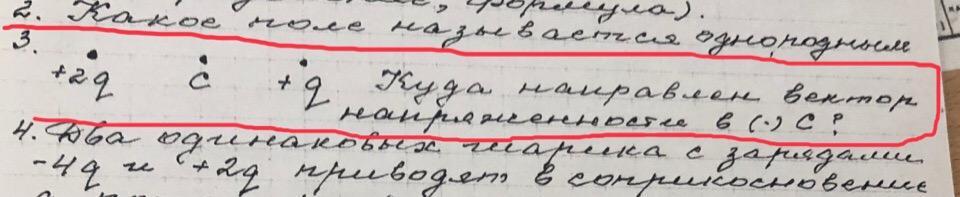 формула).
2. Какое поле называется однородным
3.
+2q C +q Куда направлен вектор
напряженности в (·) C?
4. Два одинаковых шарика с зарядами
-4q и +2q приводят в соприкосновение